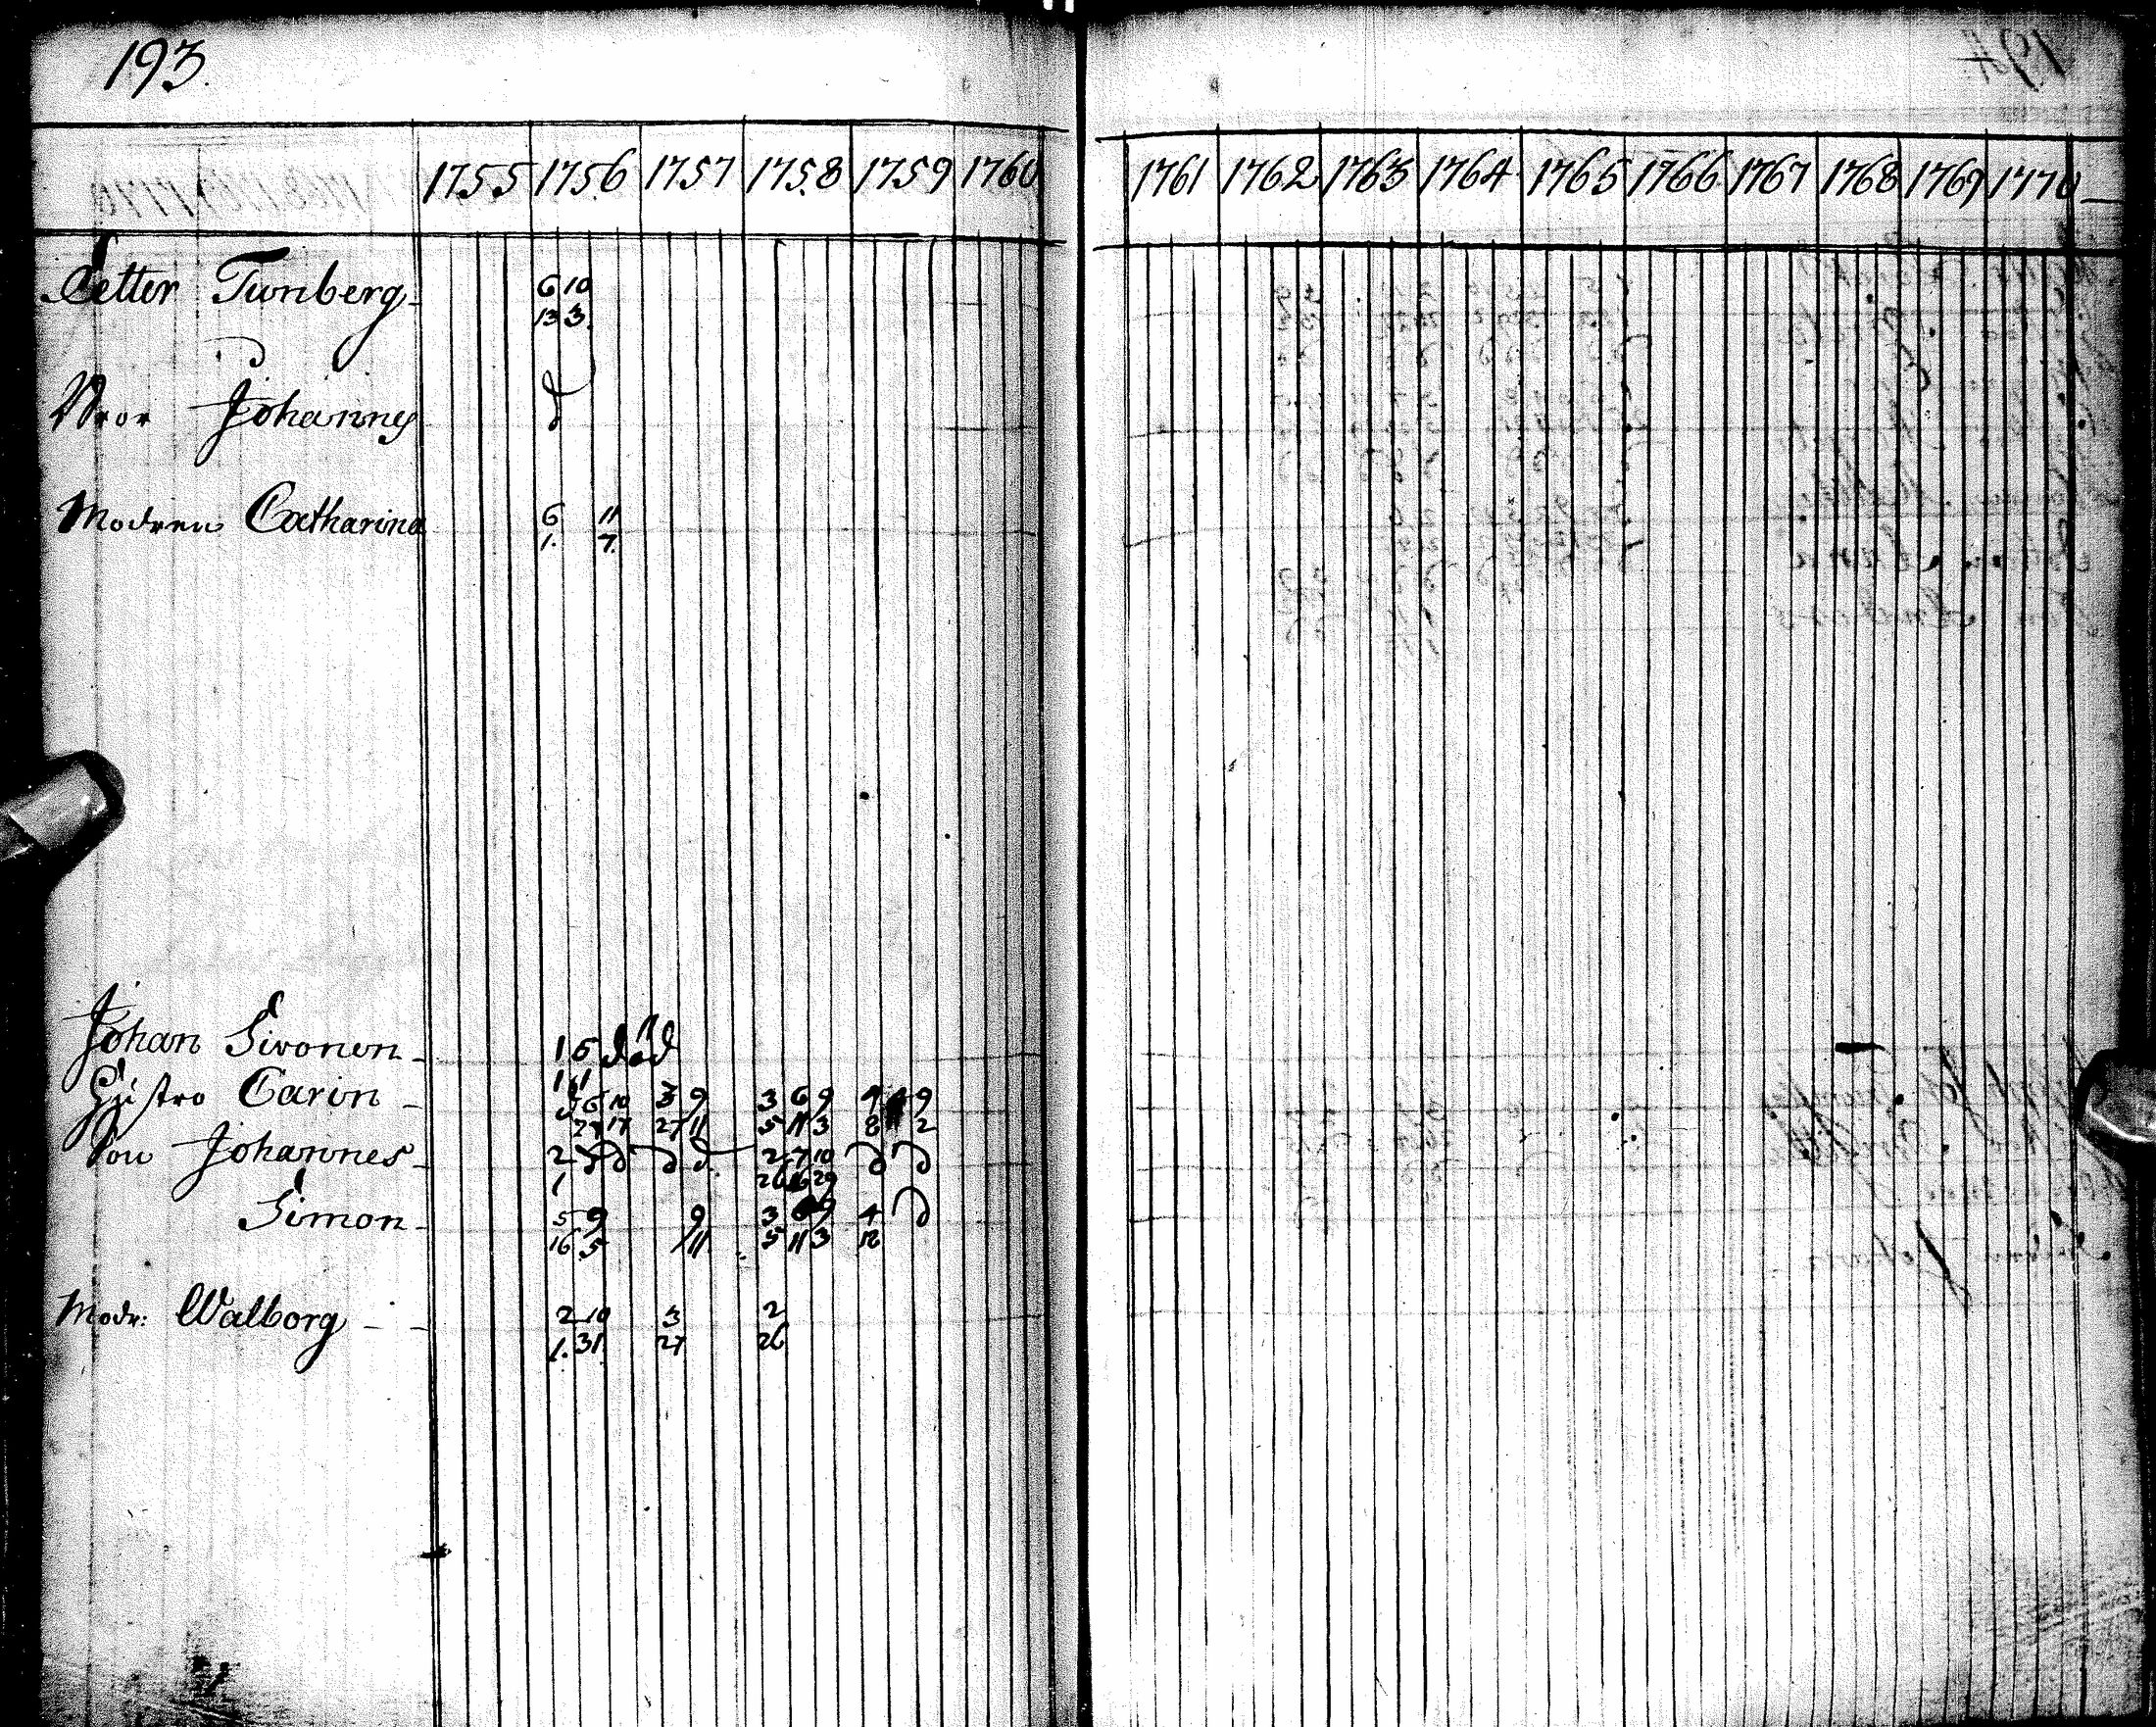 193.
1755 1756 1757 1758 1759 1760 1761 1762 1763 1764 1765 1766 1767 1768 1769 1770
Petter Tunberg 6 10
13 3.
Bror Johannes
Modren Catharina 6 11
1. 7.
Johan Sivonen 1 5 död
1 1
Hustro Carin 5 10 3 9 3 6 9 4 9
27 17 27 11 5 11 3 8 2
Son Johannes 2 d d d d 2 7 10 d d
1 26 16 29
Simon 5 9 9 3 6 9 4 d
16 5 11 5 11 3 12
Modr: Walborg 2 10 3 2
1. 31. 27 26